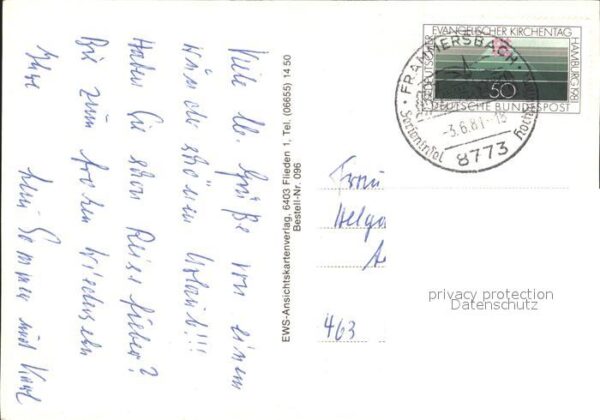 Viele lb. Grüße von einem
wunderschönen Urlaub!!!
Haben Sie schon Reisefieber?
Bis zum frohen Wiedersehn
Ihre
EWS-Ansichtskartenverlag, 6403 Flieden 1, Tel. (06655) 14 50
Bestell-Nr. 096
EVANGELISCHER KIRCHENTAG
HAMBURG 1981
50
DEUTSCHE BUNDESPOST
FRAMMERSBACH
-3.6.81.-18
Ferieninsel
8773
Frau
Helga
463
privacy protection
Datenschutz